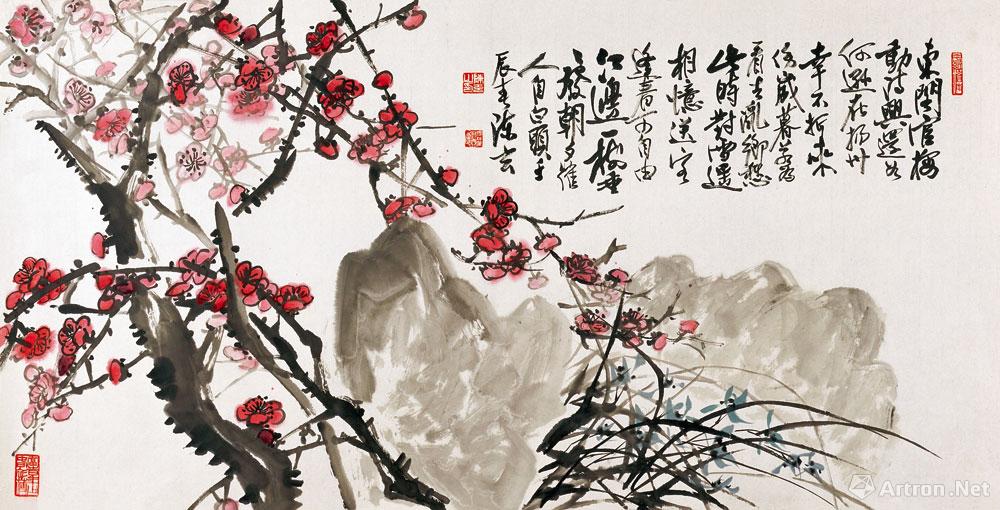 東閣官梅
動詩興還如
何遜在揚州
幸不折來
傷歲暮若為
看去亂鄉愁
此時對雪遥
相憶送客
逢春可自由
江邊一樹垂
〻發朝夕催
人自白頭
辰
Artron.Net